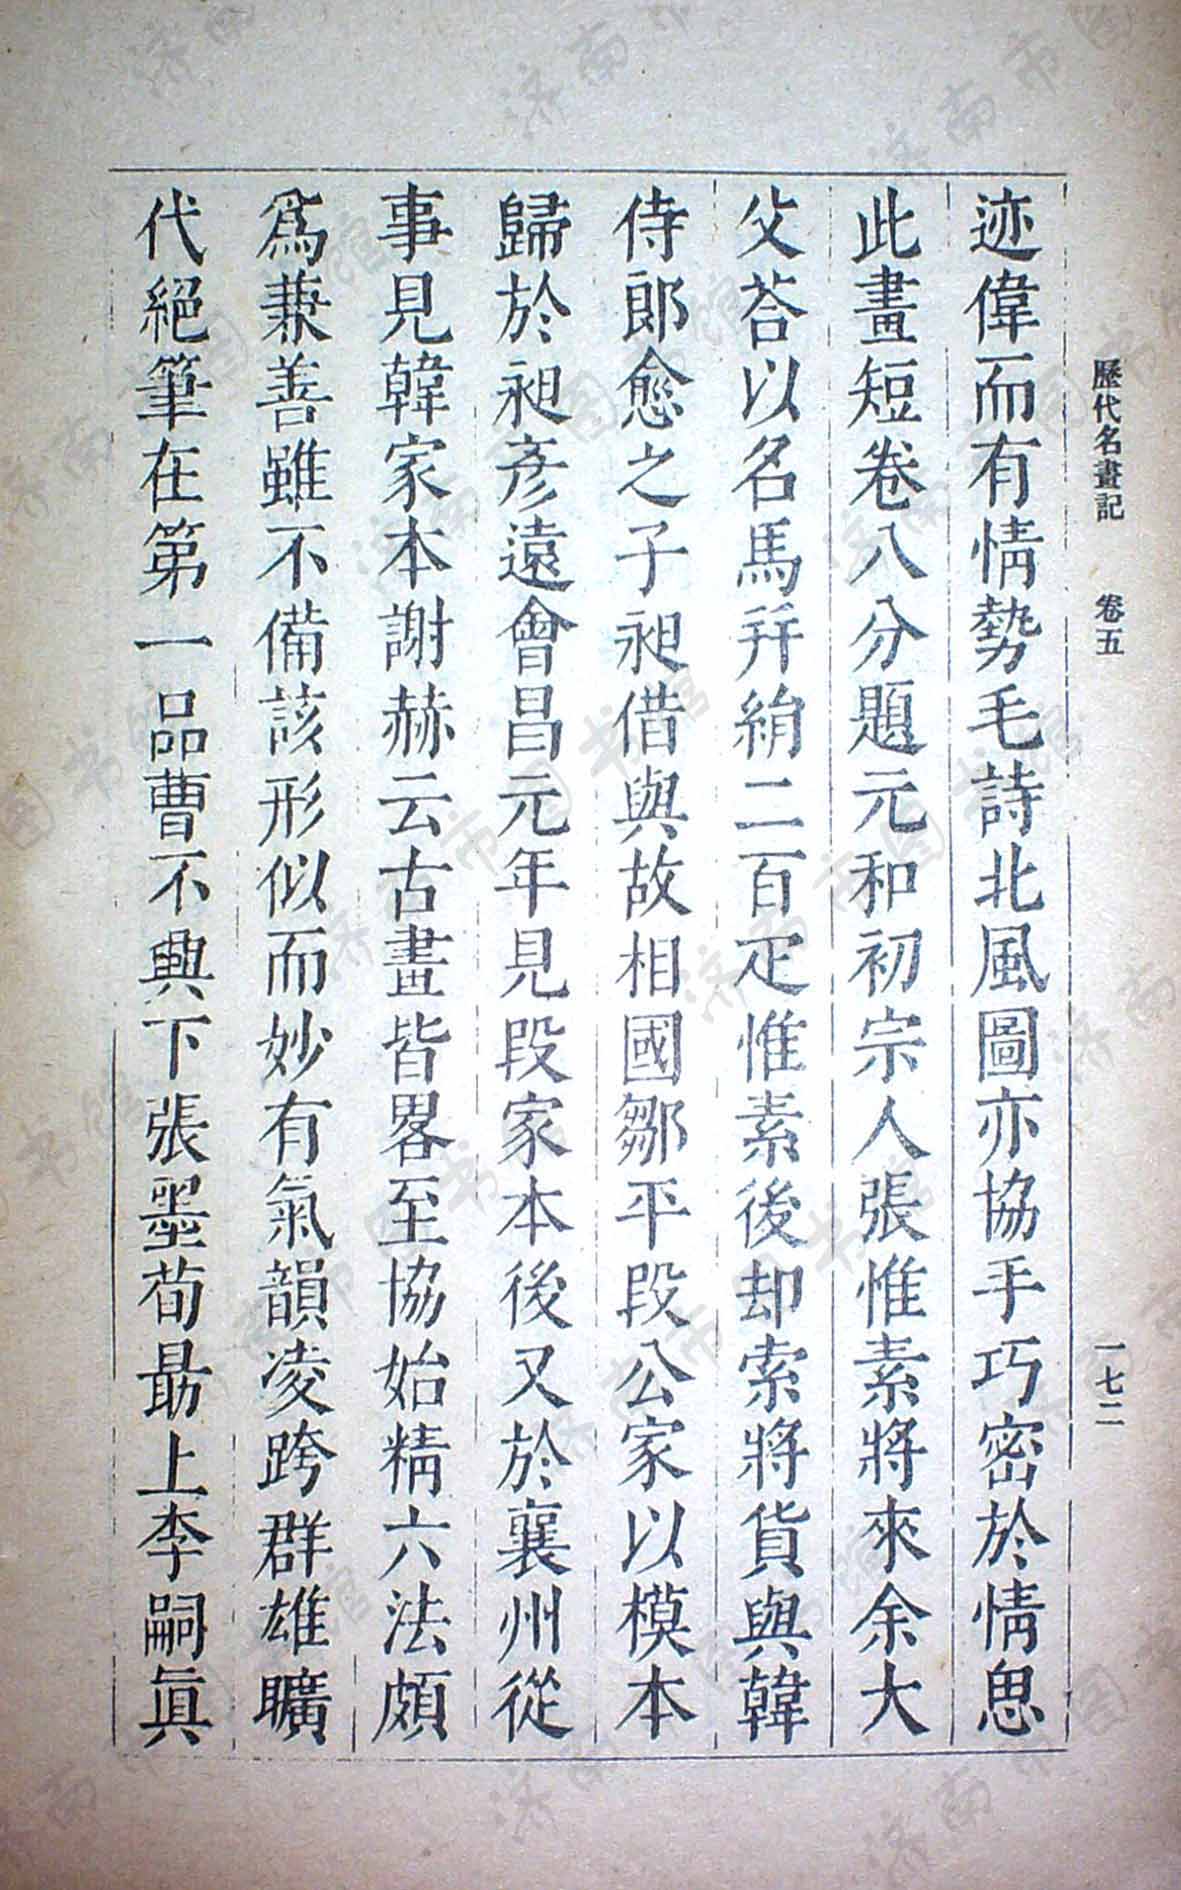 歷代名畫記 卷五 一七二
迹偉而有情勢毛詩北風圖亦協手巧密於情思
此畫短卷八分題元和初宗人張惟素將來余大
父荅以名馬幷絹二百疋惟素後却索將貨與韓
侍郎愈之子昶借與故相國鄒平段公家以模本
歸於昶彥遠會昌元年見段家本後又於襄州從
事見韓家本謝赫云古畫皆畧至協始精六法頗
爲兼善雖不備該形似而妙有氣韻凌跨群雄曠
代絕筆在第一品曹不興下張墨荀勗上李嗣眞
济南市图书馆